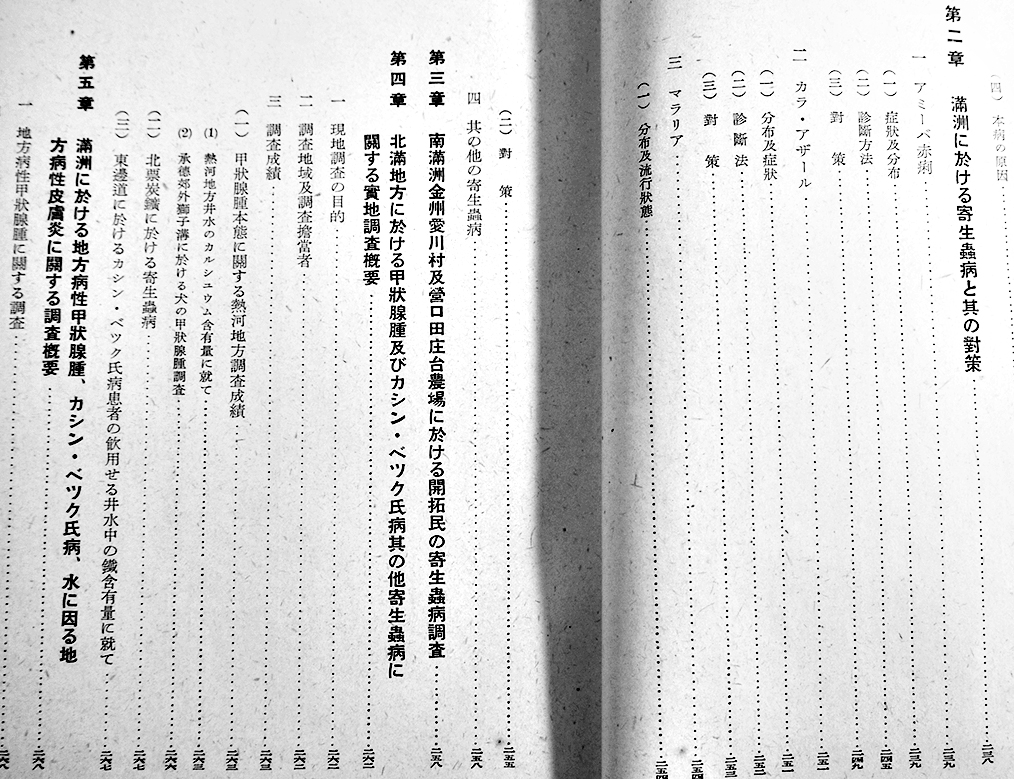 (四) 本病の原因
第二章 滿洲に於ける寄生蟲病と其の對策 二三八
一 アミーバ赤痢 二三九
(一) 症狀及分布 二三九
(二) 診斷方法 二四五
(三) 對策 二四九
二 カラ・アザール 二五一
(一) 分布及症狀 二五一
(二) 診斷法 二五二
(三) 對策 二五三
三 マラリア 二五四
(一) 分布及流行狀態 二五四
(二) 對策 二五五
四 其の他の寄生蟲病 二五八
第三章 南滿洲金州愛川村及營口田庄台農場に於ける開拓民の寄生蟲病調査 二五八
第四章 北滿地方に於ける甲狀腺腫及びカシン・ベツク氏病其の他寄生蟲病に
關する實地調査槪要 二六二
一 現地調査の目的 二六二
二 調査地域及調査擔當者 二六二
三 調査成績 二六三
(一) 甲狀腺腫本態に關する熱河地方調査成績 二六三
(1) 熱河地方井水のカルシユウム含有量に就て 二六三
(2) 承德郊外獅子溝に於ける犬の甲狀腺腫調査 二六六
(二) 北票炭鑛に於ける寄生蟲病 二六七
(三) 東邊道に於けるカシン・ベツク氏病患者の飮用せる井水中の鐵含有量に就て 二六七
第五章 滿洲に於ける地方病性甲狀腺腫、カシン・ベツク氏病、水に因る地
方病性皮膚炎に關する調査槪要 二六八
一 地方病性甲狀腺腫に關する調査 二六八